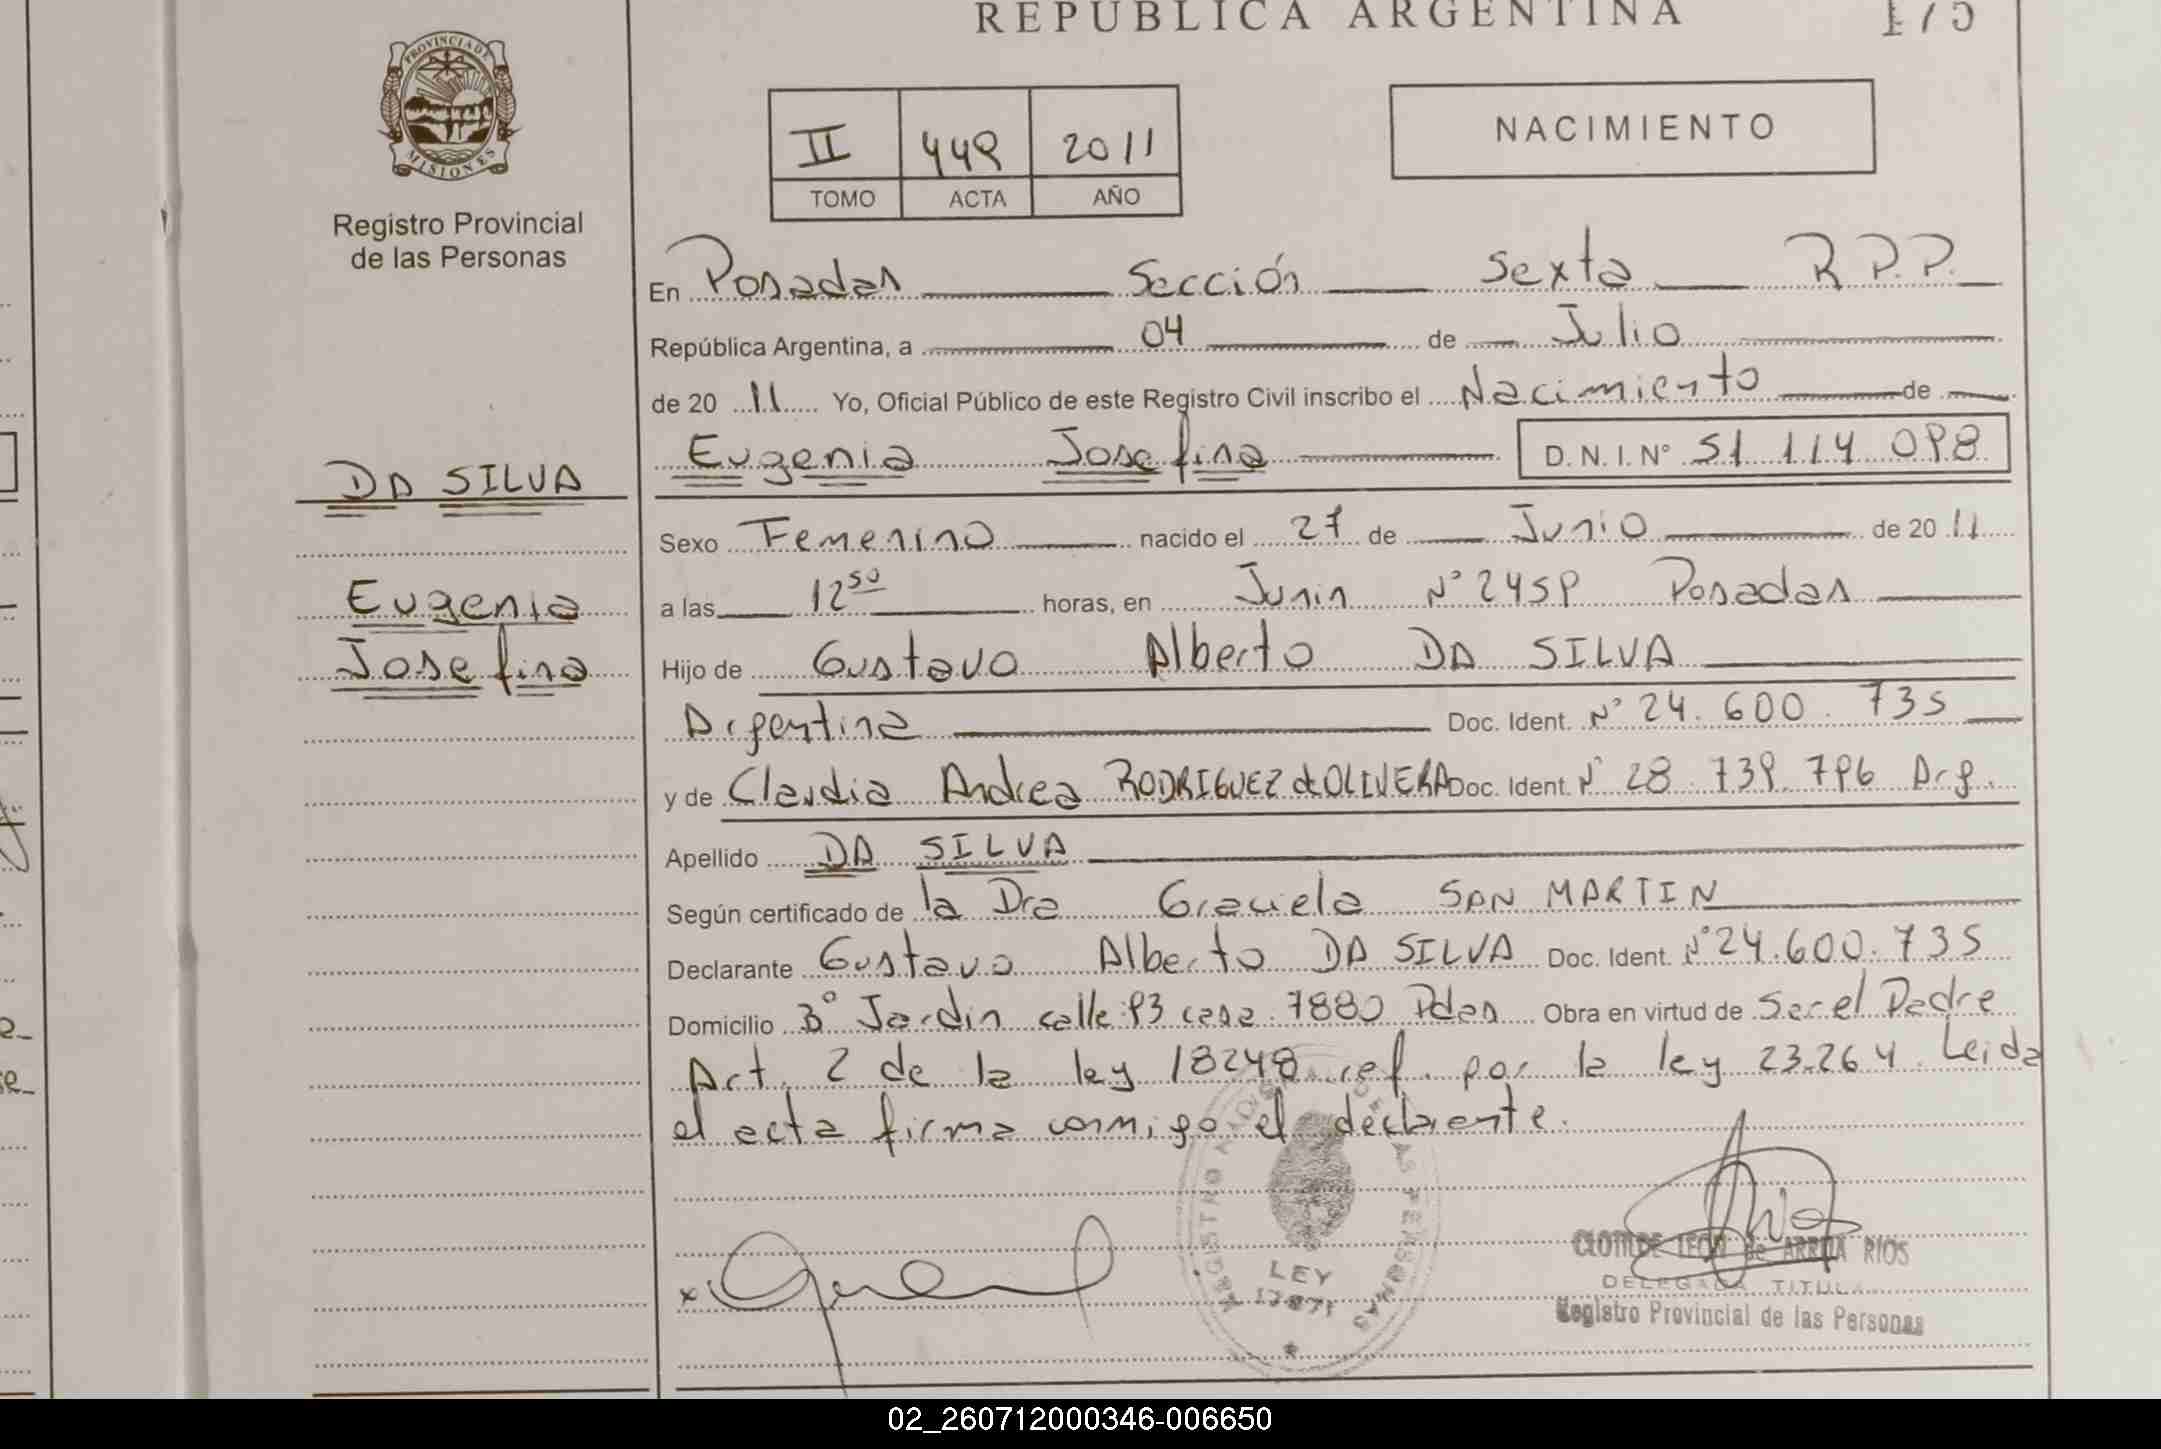 REPUBLICA ARGENTINA
175
PROVINCIA DE
MISIONES
Registro Provincial
de las Personas
II 449 2011
TOMO ACTA AÑO
NACIMIENTO
En Posadas Sección Sexta R.P.P.
República Argentina, a 04 de Julio
de 20 11 Yo, Oficial Público de este Registro Civil inscribo el Nacimiento de
Eugenia Josefina D.N.I.N° 51 114 098
DA SILVA
Sexo Femenino nacido el 27 de Junio de 20 11
Eugenia
Josefina
a las 12 50 horas, en Junin N° 2459 Posadas
Hijo de Gustavo Alberto DA SILVA
Argentina Doc. Ident. N° 24.600.735
y de Claudia Andrea RODRIGUEZ d OLIVERA Doc. Ident. N° 28.739.796 Arg.
Apellido DA SILVA
Según certificado de la Dra Graciela SAN MARTIN
Declarante Gustavo Alberto DA SILVA Doc. Ident. N° 24.600.735
Domicilio B° Jardin calle 93 casa 7880 Pdas Obra en virtud de Ser el Padre
Art. 2 de la ley 18248 ref. por la ley 23.264. Leida
el acta firma conmigo el declarante.
REGISTRO NACIONAL DE LAS PERSONAS
LEY
17671
CLOTILDE LEON de ARRUA RIOS
DELEGADA TITULAR
Registro Provincial de las Personas
02_260712000346-006650